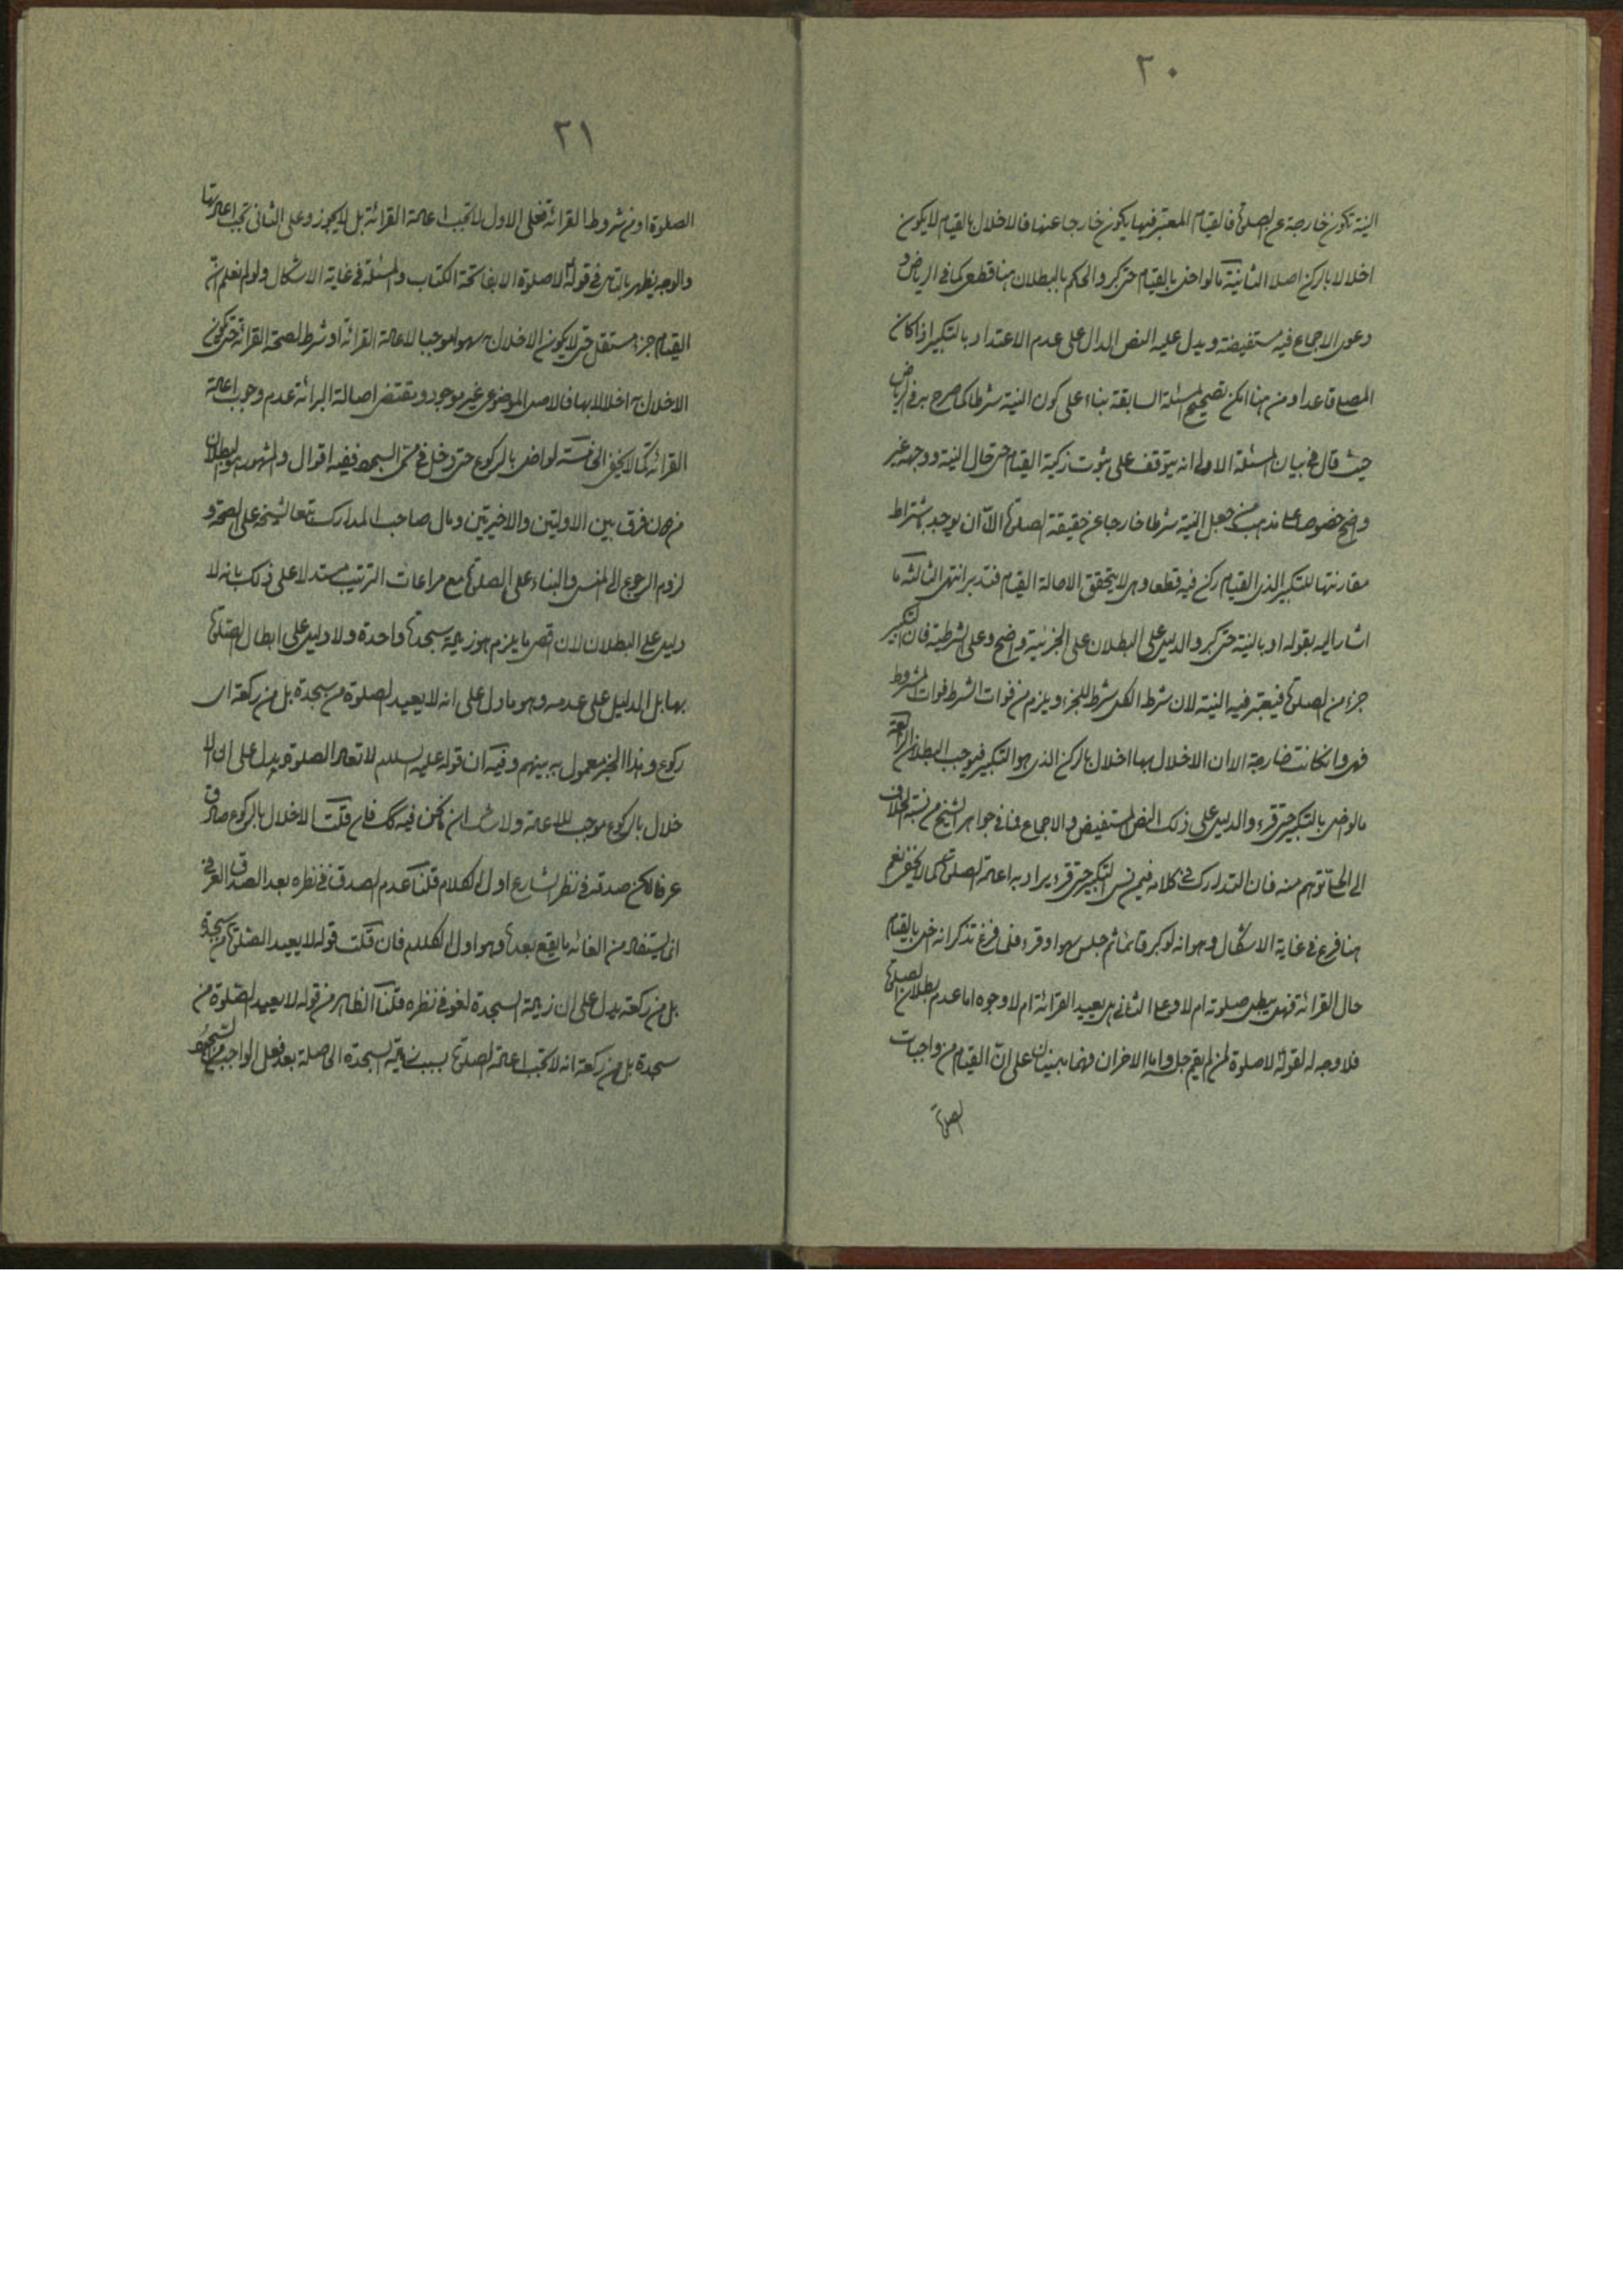 ٢٠
النية تكون خارجة عن الصلوة فالقيام المعتبر فيها يكون خارجا عنها فالاخلال بالقيام لا يكون
اخلالا بالركن اصلا الثانية ما لو اخل بالقيام حتى كبر والحكم بالبطلان هنا قطعى كما فى الرياض و
دعوى الاجماع فيه مستفيضة ويدل عليه النص الدال على عدم الاعتداد بالتكبير اذا كان
المصلى قاعدا ومن هنا امكن تصحيح المسئلة السابقة بناء على كون النية شرطا كما صرح به فى الرياض
حيث قال فى بيان المسئلة الاولى انه يتوقف على ثبوت ركنية القيام حتى حال النية ووجهه غير
واضح خصوصا على مذهب من جعل النية شرطا خارجا عن حقيقة الصلوة الا ان يوجه باشتراط
مقارنتها للتكبير الذى القيام ركن فيه قطعا وهى لا يتحقق الا حالة القيام فتدبر انتهى الثالثة ما
اشار اليه بقوله او بالنية حتى كبر والدليل على البطلان على الجزئية واضح وعلى الشرطية فان التكبير
جزء من الصلوة فيعتبر فيه النية لان شرط الكل شرط للجزء ويلزم من فوات الشرط فوات المشروط
فهى وان كانت خارجة الا ان الاخلال بها اخلال بالركن الذى هو التكبير فيوجب البطلان الرابعة
ما لو اخل بالتكبير حتى قرء والدليل على ذلك النص المستفيض والاجماع فما فى جواهر الشيخ من نسبة الخلاف
الى الحلى توهم منه فان التدارك فى كلامه فيمن نسى التكبير حتى قرء يراد به اعادة الصلوة كما لا يخفى نعم
هنا فرع فى غاية الاشكال وهو انه لو كبر قائما ثم جلس سهوا وقرء فلما فرغ تذكر انه اخل بالقيام
حال القرائة فهل يبطل صلوته ام لا وعلى الثانى هل يعيد القرائة ام لا وجوه اما عدم بطلان الصلوة
فلا وجه له لقوله لا صلوة لمن لم يقم صلبه واما الاخران فهما مبنيان على ان القيام من واجبات
الصلوة
٢١
الصلوة او من شروط القرائة فعلى الاول لا تجب اعادة القرائة بل لا يجوز وعلى الثانى تجب اعادتها
والوجه يظهر بالتامل فى قوله لا صلوة الا بفاتحة الكتاب والمسئلة فى غاية الاشكال ولو لم نعلم ان
القيام جزء مستقل حتى لا يكون الاخلال به سهوا موجبا لاعادة القرائة او شرط لصحة القرائة حتى يكون
الاخلال به اخلالا بها فالاصل الموضوعى غير موجود ويقتضى اصالة البرائة عدم وجوب اعادة
القرائة كما لا يخفى الخامسة لو اخل بالركوع حتى دخل فى السجود ففيه اقوال والمشهور هو البطلان
من دون فرق بين الاولتين والاخيرتين ومال صاحب المدارك تبعا للشيخ على الصحة و
لزوم الرجوع الى المنسى والبناء على الصلوة مع مراعات الترتيب مستدلا على ذلك بانه لا
دليل على البطلان لان اقصى ما يلزم هو زيادة سجدة واحدة ولا دليل على ابطال الصلوة
بها بل الدليل على عدمه وهو ما دل على انه لا يعيد الصلوة من سجدة بل من ركعة اى
ركوع وهذا الخبر معمول به بينهم وفيه ان قوله عليه السلام لا تعاد الصلوة يدل على ان الا
خلال بالركوع موجب للاعادة ولا شك ان ما نحن فيه كك فان قلت الاخلال بالركوع صادق
عرفا لكن صدقه فى نظر الشارع اول الكلام قلنا عدم الصدق فى نظره بعد الصدق العرفى
انما يستفاد من الغائه ما يقع بعده وهو اول الكلام فان قلت قوله لا يعيد الصلوة من سجدة
بل من ركعة يدل على ان زيادة السجدة لغو فى نظره قلنا الظاهر من قوله لا يعيد الصلوة من
سجدة بل من ركعة انه لا تجب اعادة الصلوة بسبب زيادة السجدة الحاصلة بعد فعل الواجب من السجود